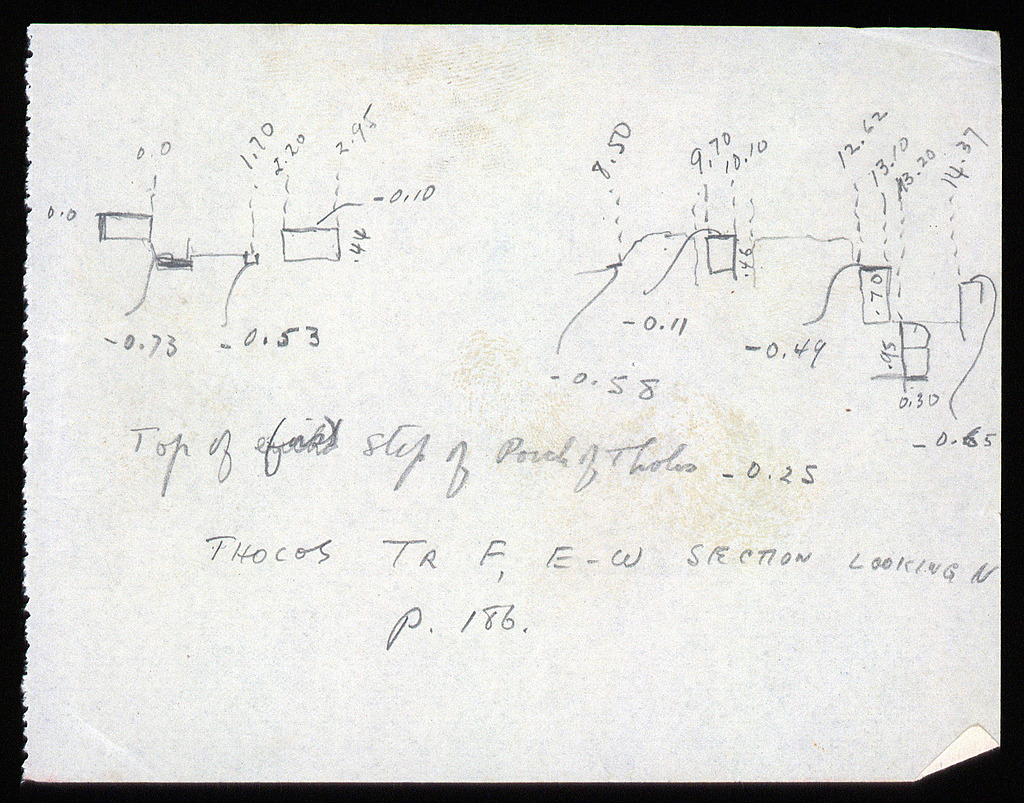 0.0 1.70 2.20 2.95 8.50 9.70 10.10 12.62 13.10 13.20 14.37
0.0 -0.10 .44 .46 .70
-0.73 -0.53 -0.11 -0.49 .95
-0.58 0.30
-0.65
Top of Step of Porch of Tholos -0.25
THOLOS TR F, E-W SECTION LOOKING N
p. 186.